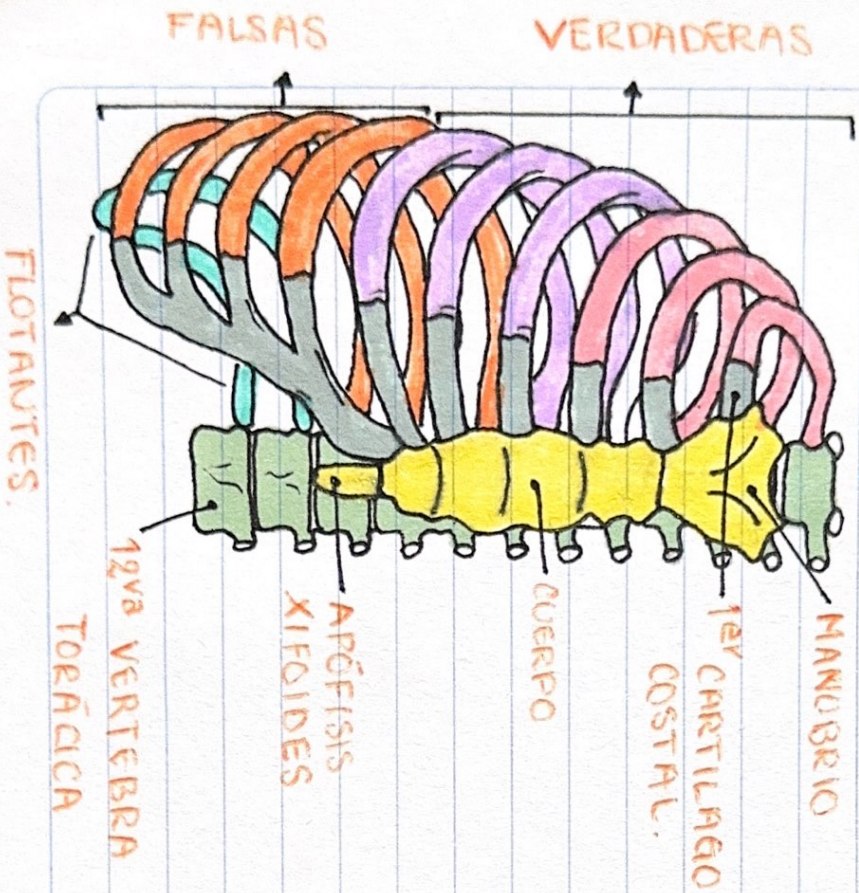 FALSAS
VERDADERAS
FLOTANTES.
12va VERTEBRA
TORÁCICA
APÓFISIS
XIFOIDES
CUERPO
1er CARTILAGO
COSTAL.
MANUBRIO